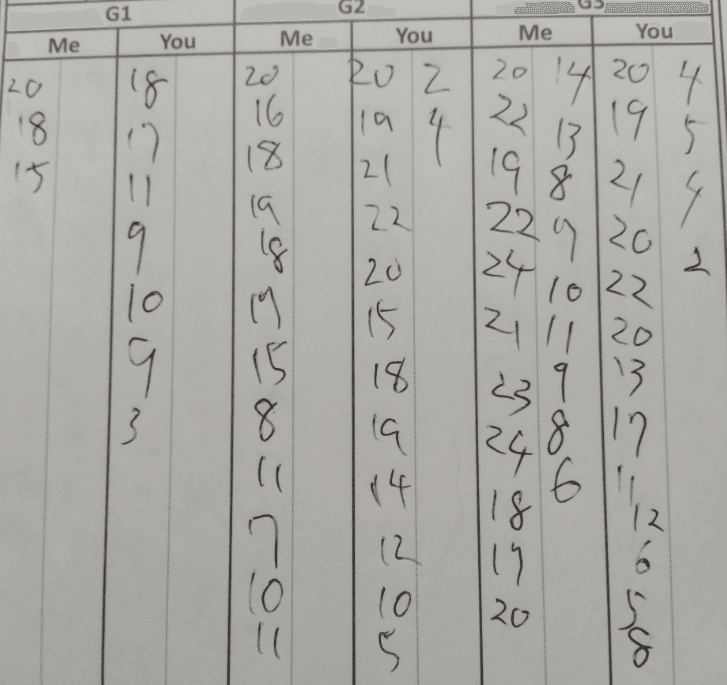 G1 G2 G3
Me You Me You Me You
20 18 20 20 2 20 14 20 4
18 17 16 19 4 22 13 19 5
15 11 18 21 19 8 21 4
9 19 22 22 9 20 2
10 18 20 24 10 22
9 17 15 21 11 20
3 15 18 23 9 13
8 19 24 8 17
11 14 18 6 11
7 12 17 12
10 10 20 6
11 5 5
8